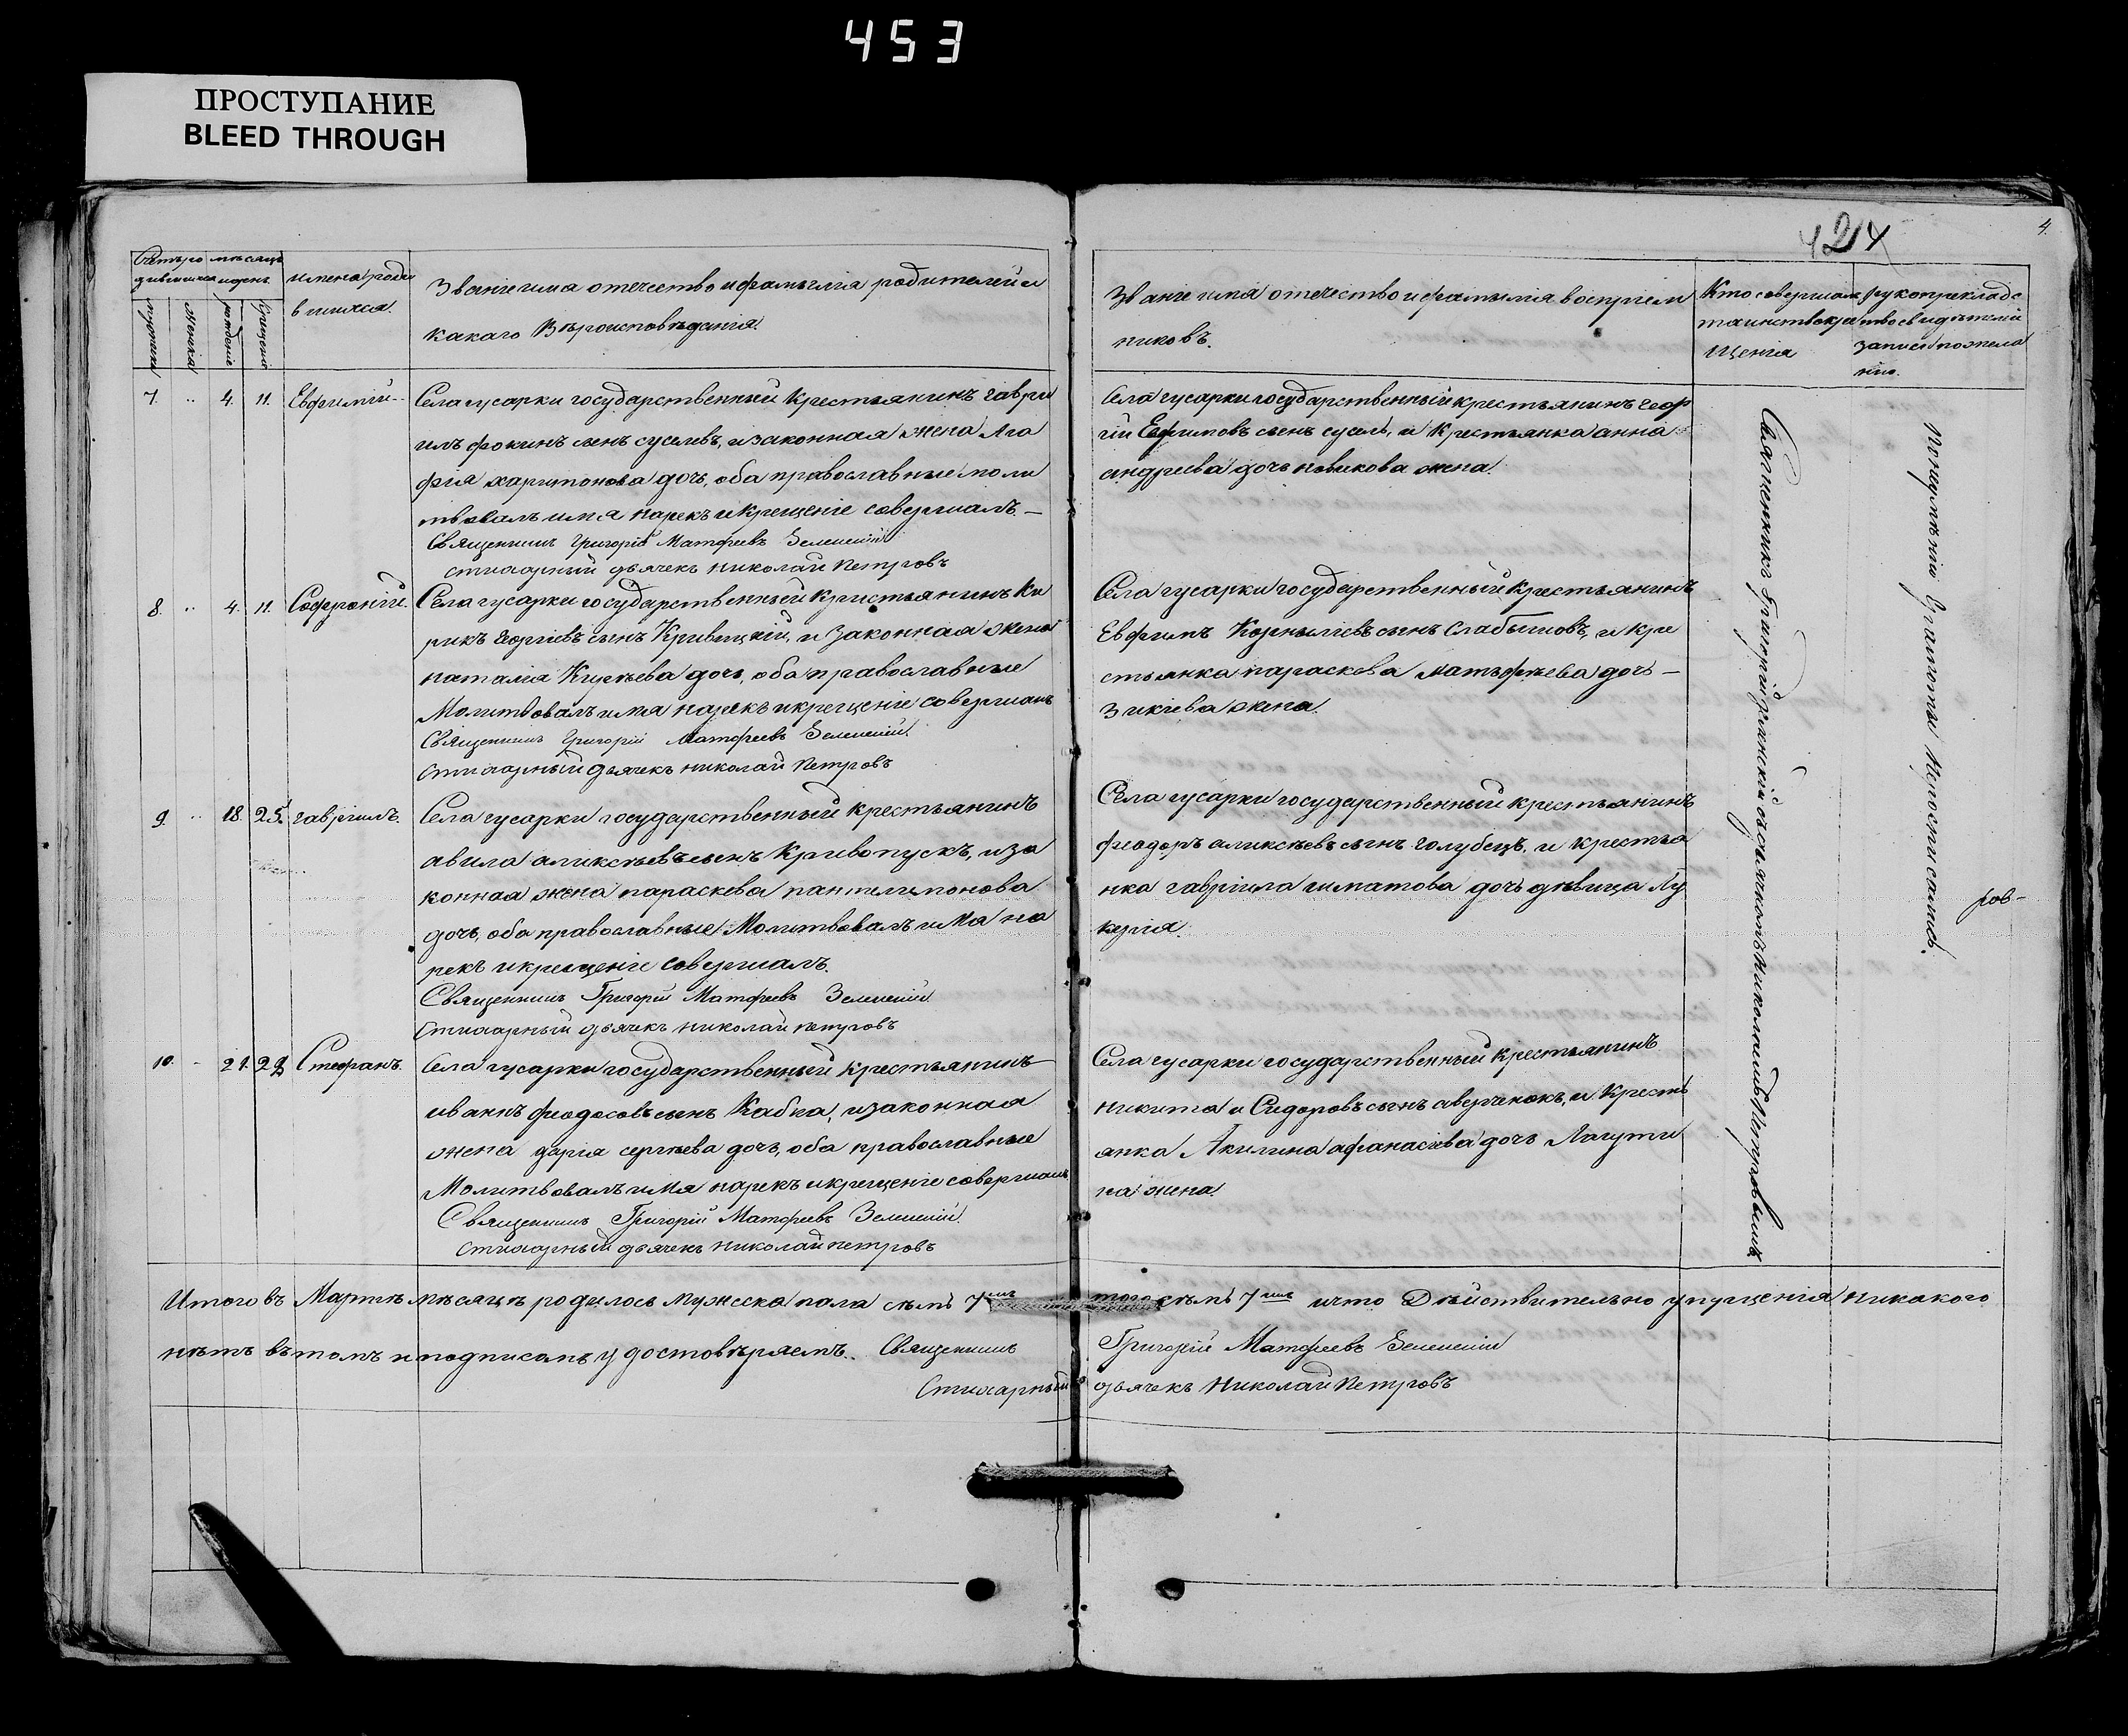 453
ПРОСТУПАНИЕ
BLEED THROUGH
424
4.
Счетъ ро
дившихся
мѣсяцъ
и день
имена роди
вшихся.
Званіе има отечество и фамылія родителей и
какаго Вѣроисповѣданія.
Званіе имя отечество и фамылія воспріем
никовъ.
Кто совершалъ
таинство кре
щенія
рукоприкладс
тво свидѣтелей
записи пожела
нію.
мужеска
женска
рожденіе
Крещеніе
7. .. 4. 11. Евфимій
Села гусарки государственный крестьянинъ гаври
илъ фокинъ сынъ суселевъ, и законная жена Ага
фия харитонова дочь, оба православные моли
твовалъ имя нарекъ и крещеніе совершалъ. —
Священникъ Григорій Матфеевъ Зеленскій
стихарный дьячекъ николай петровъ
Села гусарки государственный крестьянинъ геор
гій Евфимовъ сынъ сусль, и Крестьянка анна
андреева дочь новикова жена.
8. .. 4. 11. Софроній.
Села гусарки государственный Кристьянинъ Ки
рикъ Георгіевъ сынъ Кривицкій, и законная жена
наталія Киреѣва дочь, оба православные
Молитвовалъ имя нарекъ и крещеніе совершалъ
Священникъ Григорій Матфеевъ Зеленскій.
Стихарный дьячекъ николай петровъ
Села гусарки государственный Крестьянинъ
Евфимъ Корныліевъ сынъ Слабышовъ, и кре
стьянка параскева матъфѣева дочь —
зикіева жена.
9. .. 18. 25. гавріилъ.
Села гусарки государственный крестьянинъ
авила алексѣевъ сынъ Кривопускъ, и за
конная жена параскева пантелимонова
дочь, оба православные Молитвовалъ иМя на
рекъ и крещеніе совершалъ.
Священникъ Григорій Матфеевъ Зеленскій
Стихарный дьячекъ николай петровъ
Села гусарки государственный крестьянинъ
феодоръ аликсѣевъ сынъ голубецъ, и крестья
нка гавріила игнатова дочь дѣвица Лу
керія.
10. .. 21. 29 Стефанъ.
Села гусарки государственный крестьянинъ
иванъ феодосовъ сынъ Кабка, и законная
жена дарія сергѣева дочь, оба православные
Молитвовалъ иМя нарекъ и крещеніе совершалъ
Священникъ Григорій Матфеевъ Зеленскій.
Стихарный дьячекъ николай петровъ
Села гусарки государственный крестьянинъ
никита и Сидоровъ сынъ аверченокъ, и Кресть
янка Акилина афанасіева дочь Лагути
на жена.
Священникъ Григорій Зеленскій съ дьячкомъ Николаемъ Петровымъ
Понеумѣнію Грамоты Неросписались.
ров-
Итого въ Мартѣ мѣсяцѣ родилось Мужска пола семь 7мь того семь 7мь ичто Дѣйствительно упущенія никакого
нѣтъ въ томъ и подписомъ удостовѣряемъ. Священникъ Григорій Матфеевъ Зеленскій
Стихарный дьячекъ Николай Петровъ